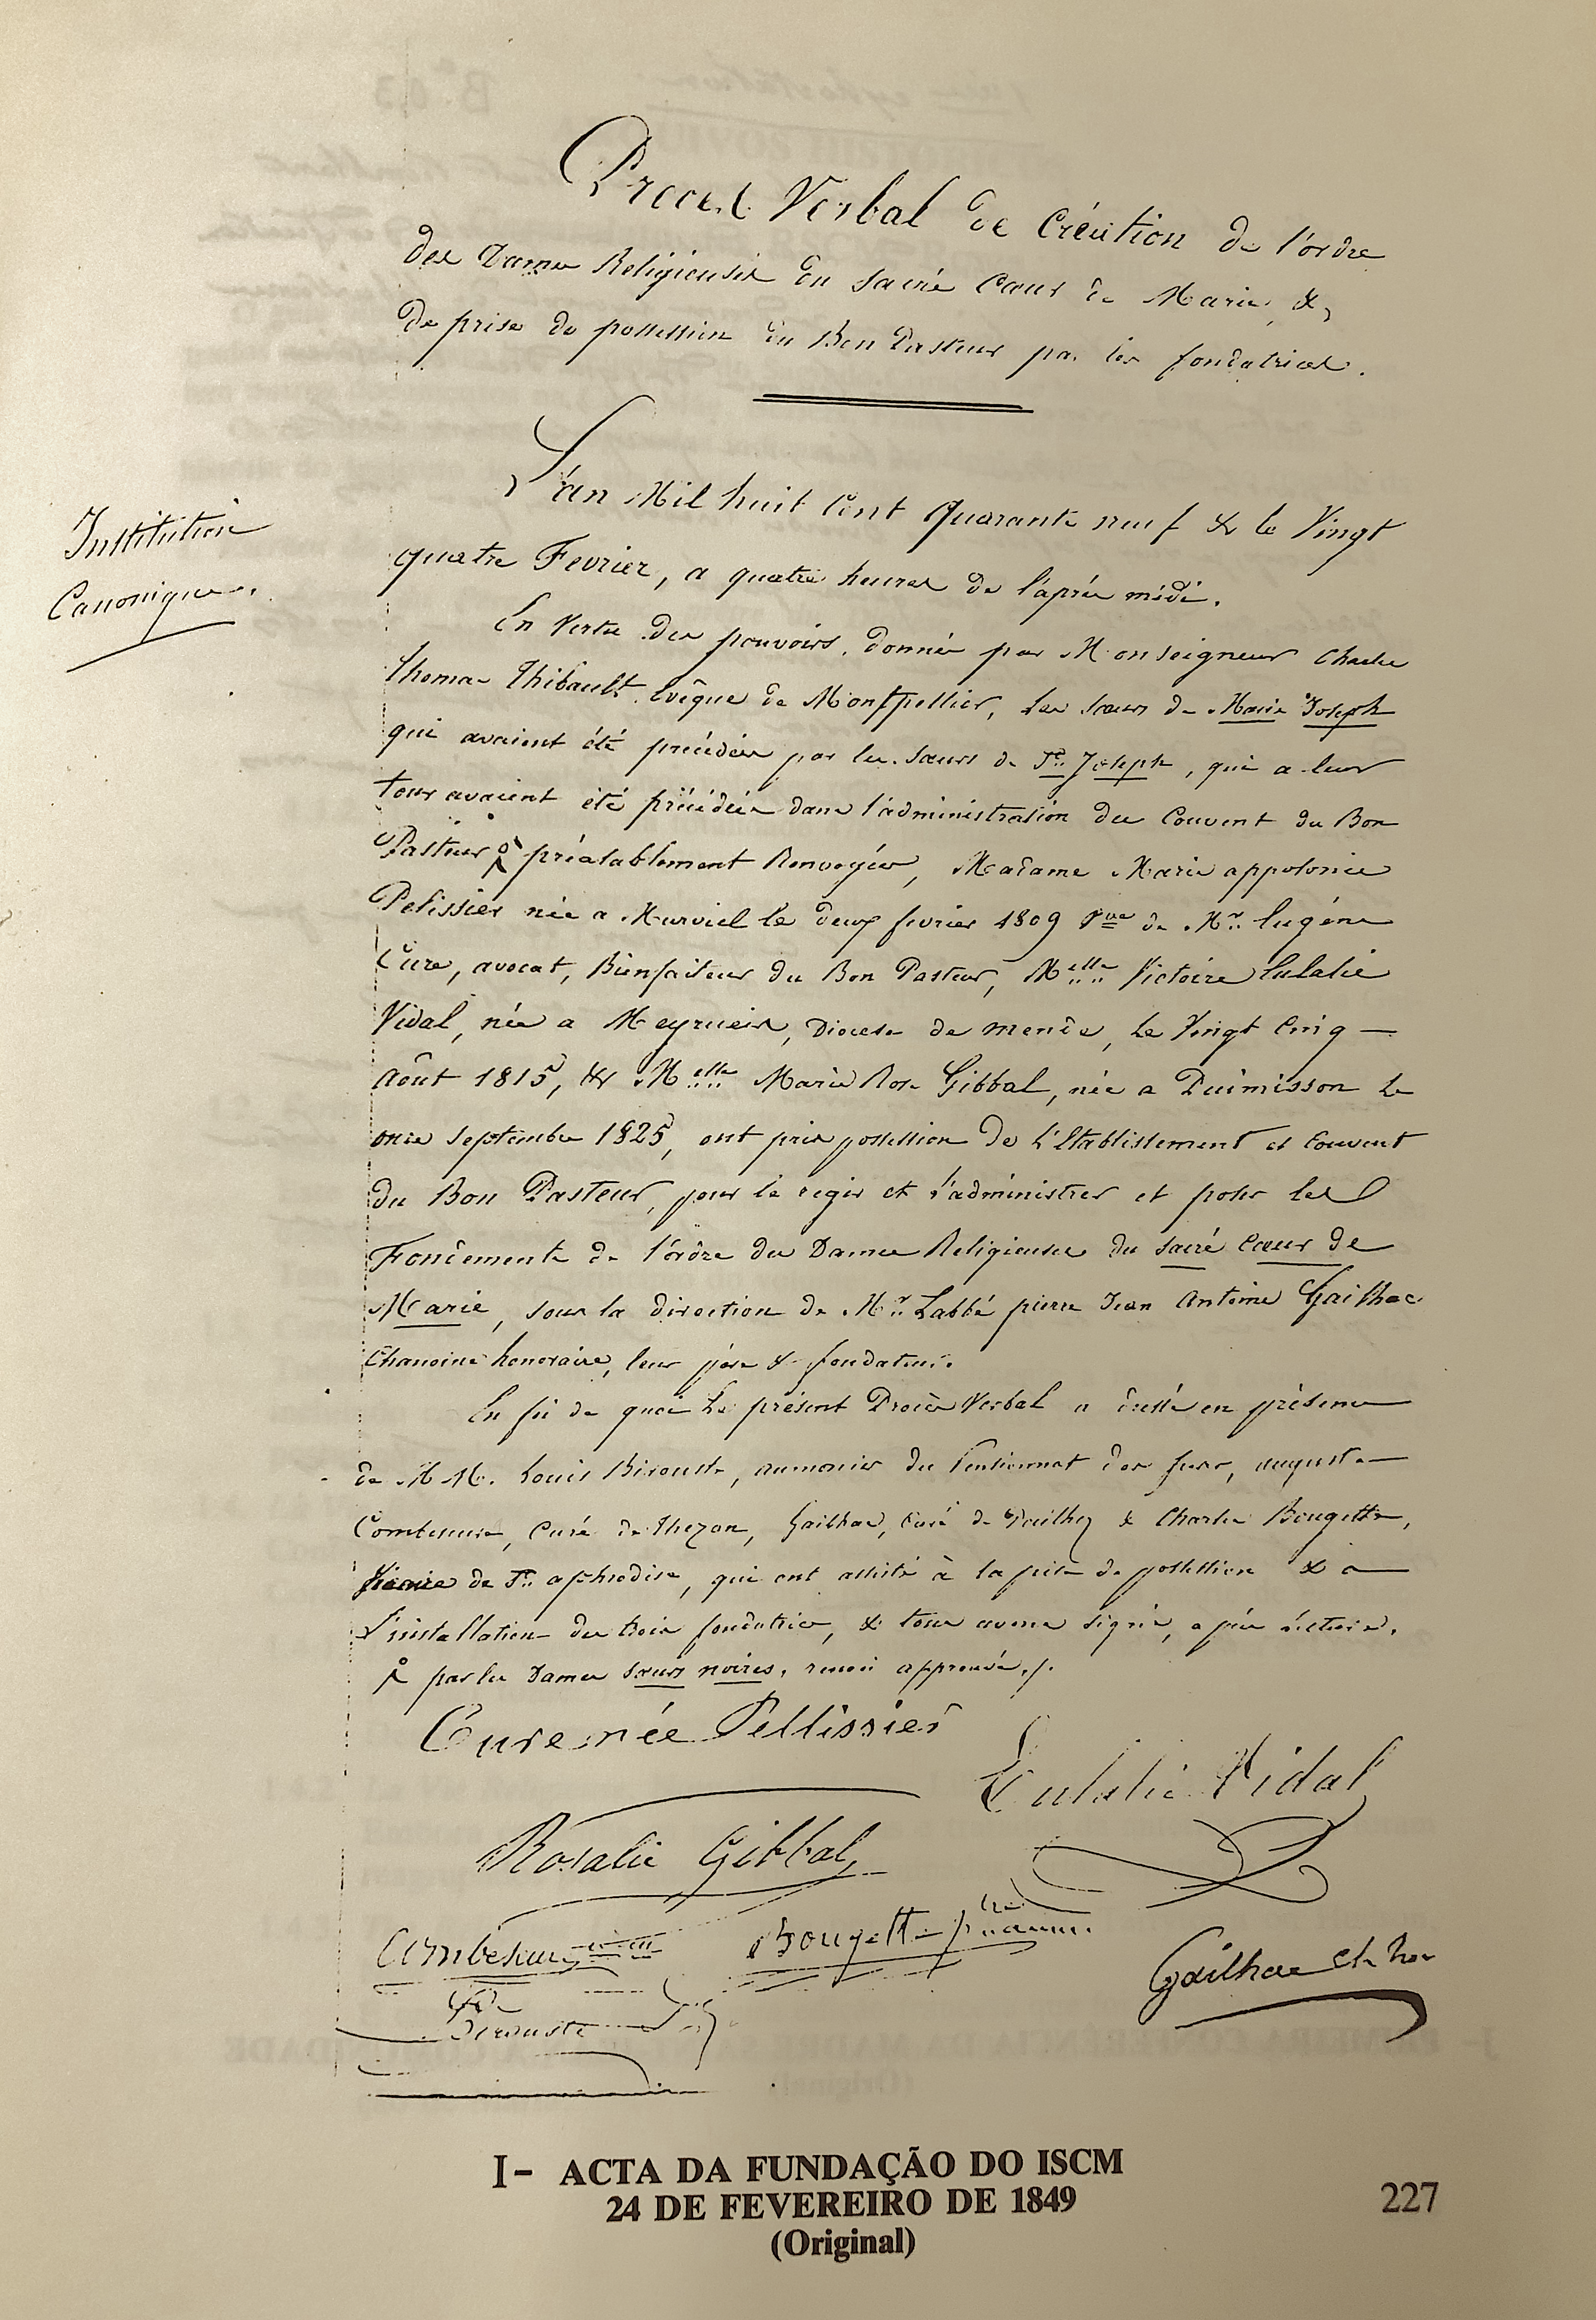 Procès Verbal de Création de l'ordre
des Dames Religieuses du sacré Cœur de Marie, &
de prise de possession du Bon Pasteur par les fondatrices.
L'an Mil huit Cent Quarante neuf & le Vingt
quatre Fevrier, a quatre heures de l'après midi.
Institution
Canonique.
En Vertu des pouvoirs, donnés par Monseigneur Charles
thomas Thibault Evêque de Montpellier, Les Sœurs de Marie Joseph
qui avaient été précédées par les Sœurs de St. Joseph, qui a leur
tour avaient été précédées dans l'administration du Couvent du Bon
Pasteur préalablement Renvoyées, Madame Marie appolonie
Pelissier née a Murviel le deux fevrier 1809 Vve de Mr. Eugène
Cure, avocat, Bienfaiteur du Bon Pasteur, Melle Victoire Eulalie
Vidal, née a Meyrueis, Diocèse de mende, Le Vingt Cinq —
Août 1815, & Melle Marie Rose Gibbal, née a Puimisson Le
onze septembre 1825, ont pris possession de L'Etablissement et Couvent
du Bon Pasteur, pour le regir et l'administrer et poser les
Fondements de l'ordre des Dames Religieuses du sacré Cœur de
Marie, sous la direction de Mr. Labbé pierre Jean Antoine Gailhac
Chanoine honoraire, leur père & fondateur.
En foi de quoi Le présent Procès Verbal a dressé en présence
de M M. Louis Birouste, aumonier du Pensionnat des fères, auguste
Combescure, Curé de Thezan, Gailhac, Curé de Pailhez & Charles Bougette,
Vicaire de St. aphrodise, qui ont assisté à la prise de possession & a —
L'installation des trois fondatrices, & tous avons signé, après lecture.
par les Dames sœurs noires, renvoi approuvé./.
Cure née Pellissier
Eulalie Vidal
Rosalie Gibbal
Combescure
Bougette
Gailhac ch. hon
Birouste
I- ACTA DA FUNDAÇÃO DO ISCM
24 DE FEVEREIRO DE 1849
(Original)
227